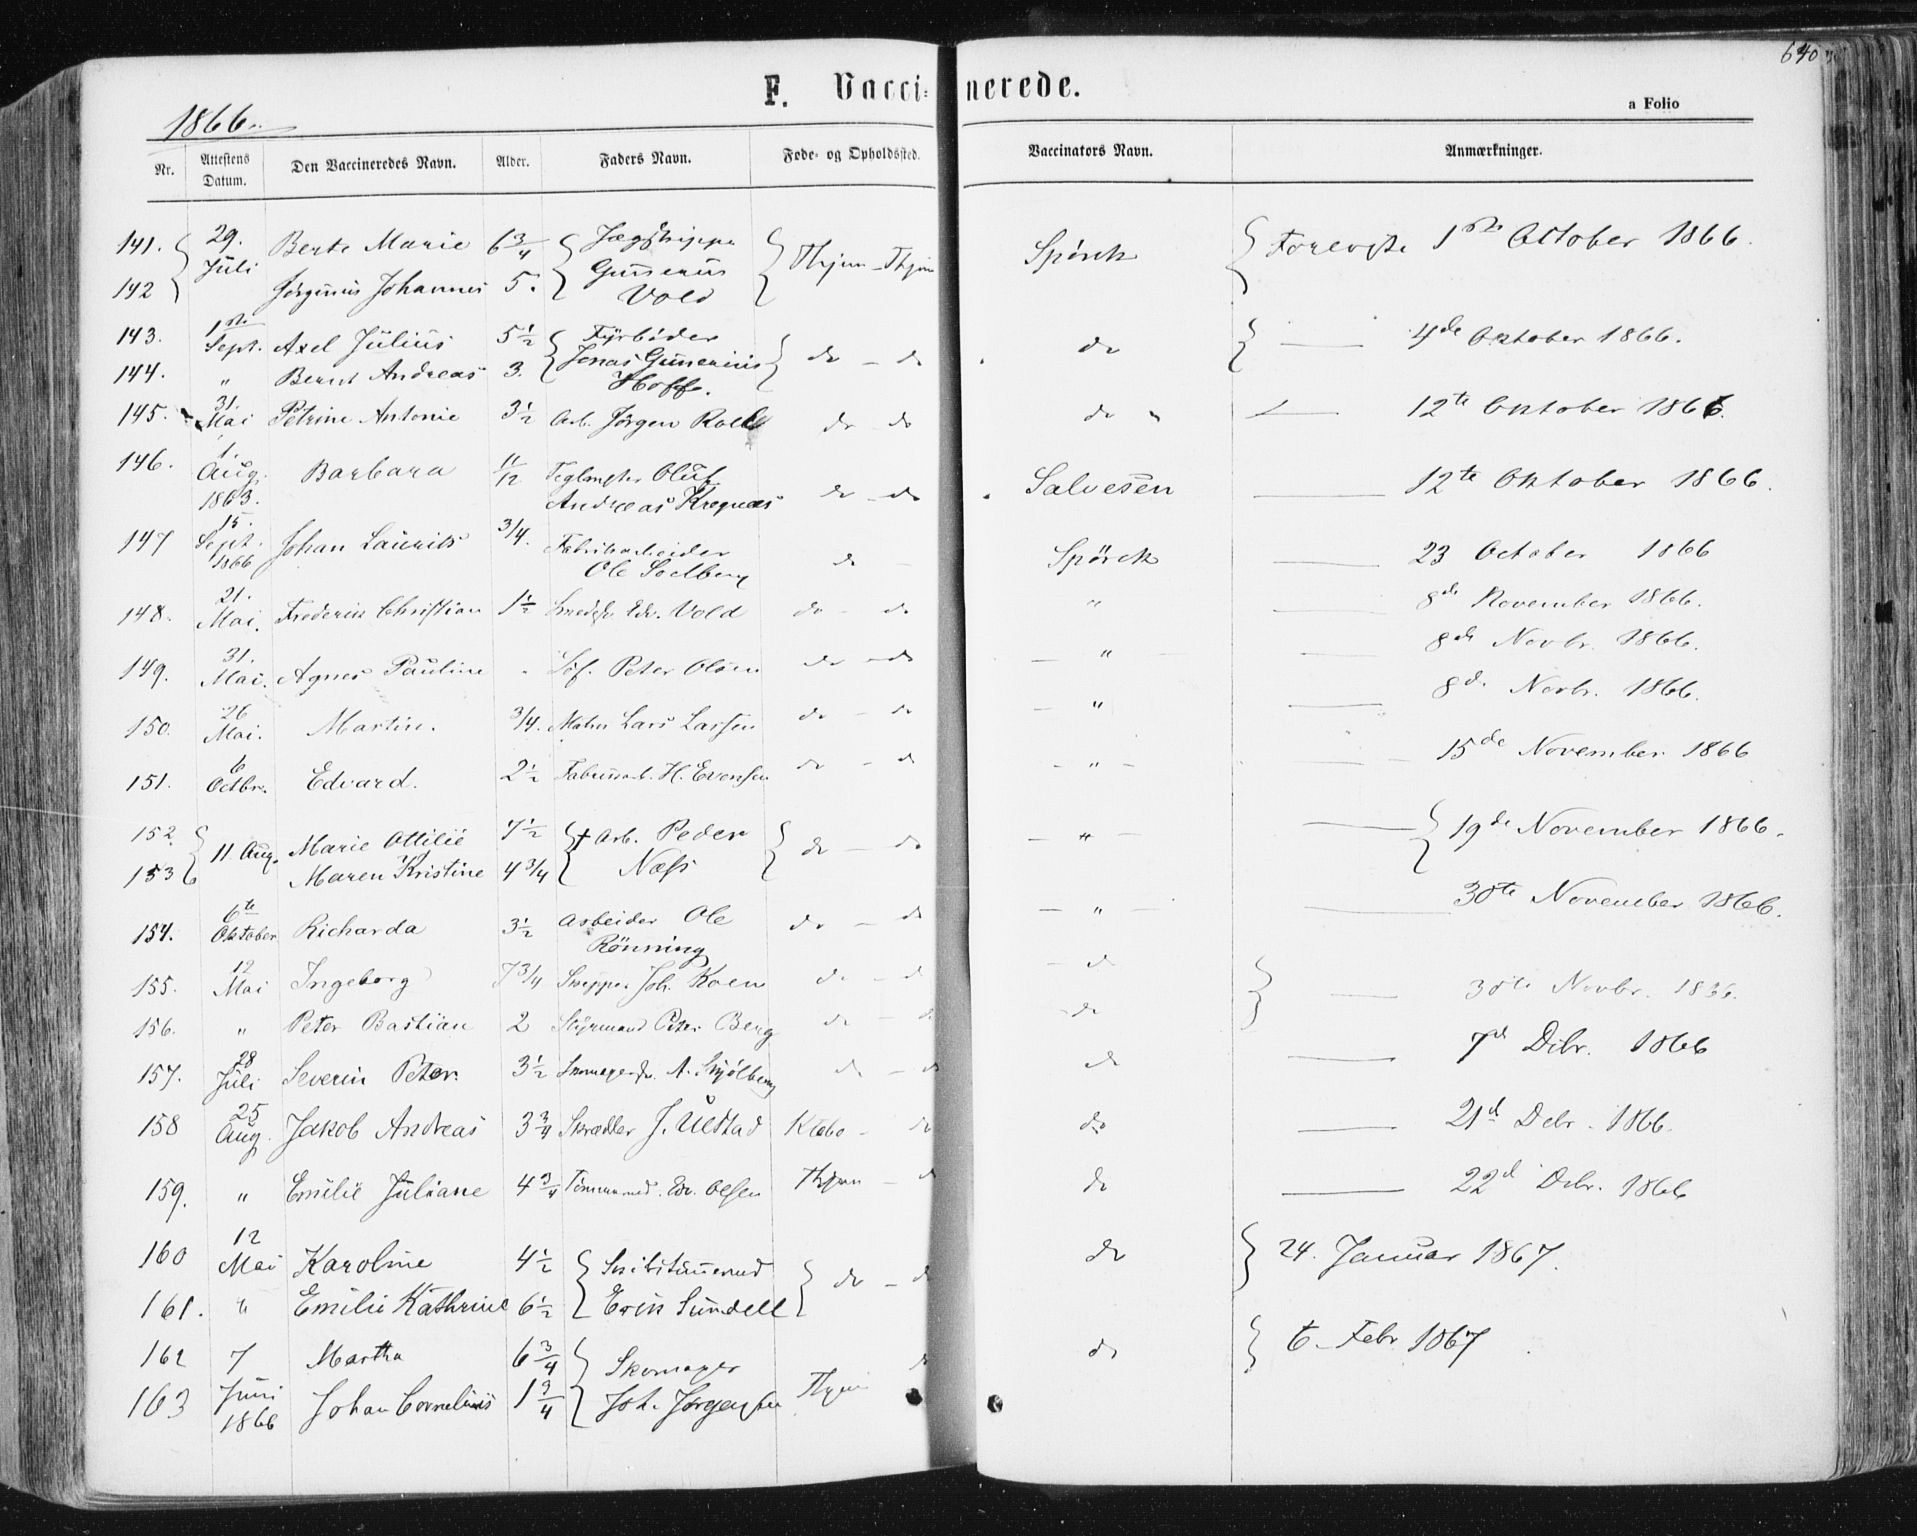 640
F. Vaccinerede.
a Folio
1866.
Nr. Attestens Datum. Den Vaccineredes Navn. Alder. Faders Navn. Føde- og Opholdssted. Vaccinators Navn. Anmærkninger.
141. 29. Juli Berte Marie 6 3/4 Spörck Foreviste 1ste October 1866.
142 " Jörginus Johannes 5. Gunerius Vold
143. 1ste Sept. Axel Julius 5 1/2 Fyrböder do - do do 4de October 1866.
144. " Bernt Andreas 3. Jonas Gunerius Hoff.
145. 31. Mai Petrine Antonie 3 1/2 Arb. Jörgen do - do do " 12te Oktober 1866.
146. 1. Aug. 1863. Barbara 11/12 Oluf Andreas do - do Salvesen 12te Oktober 1866.
147 15. Sept. 1866 Johan Laurits 3/4. Fabrikarbeider Ole Solberg do - Spörck 23 October 1866
148. 21. Mai. Frederik Christian 1 1/2 Edv. Vold do - do " 8de November 1866.
149. 31. Mai. Agnes Pauline - Peter Olsen do - do " 8de Novbr. 1866.
150. 26 Mai. Martin. 3/4. Lars Larssen do - do " 8de Novbr. 1866.
151. 6 Octbr. Edvard. 2 1/2 H. Evensen do - do - " - 15de November 1866
152. 11 Aug. Marie Ottilie 7 1/2 † Arb. Peder Næss do - do - " - 19de November 1866.
153 Maren Kristine 4 3/4
154. 6te Oktober Richarda 3 1/2 Arbeider Ole Rönning do - do - " - 30te November 1866.
155. 12 Mai Ingeborg 7 3/4 Skipper Joh. do - d - do 30te Novbr. 1866.
156. " Peter Bastian 2 Styrmand Peter Berg do - d - do
157. 28 Juli Severin Peter. 3 1/2 A. Skjölberg do - do do 7d Dcbr. 1866
158 25 Aug. Jakob Andreas 3 3/4 Skrædder J. Ulstad Klæbo - do do 21d Debr. 1866.
159. " Emilie Juliane 4 3/4 Tömmermd. Edv. Olsen Thjem - d do 22d Dcbr. 1866
160 12 Mai Karoline 4 1/2 Skibstömermd do - do do 24. Januar 1867.
161. " Emilie Kathrine 6 1/2 Erik Sundell
162 7 Martha 6 3/4 Skomager do do 6. Febr 1867
163 Juni 1866 Johan Cornelius 1 3/4 Joh. Jörgensen Thjem